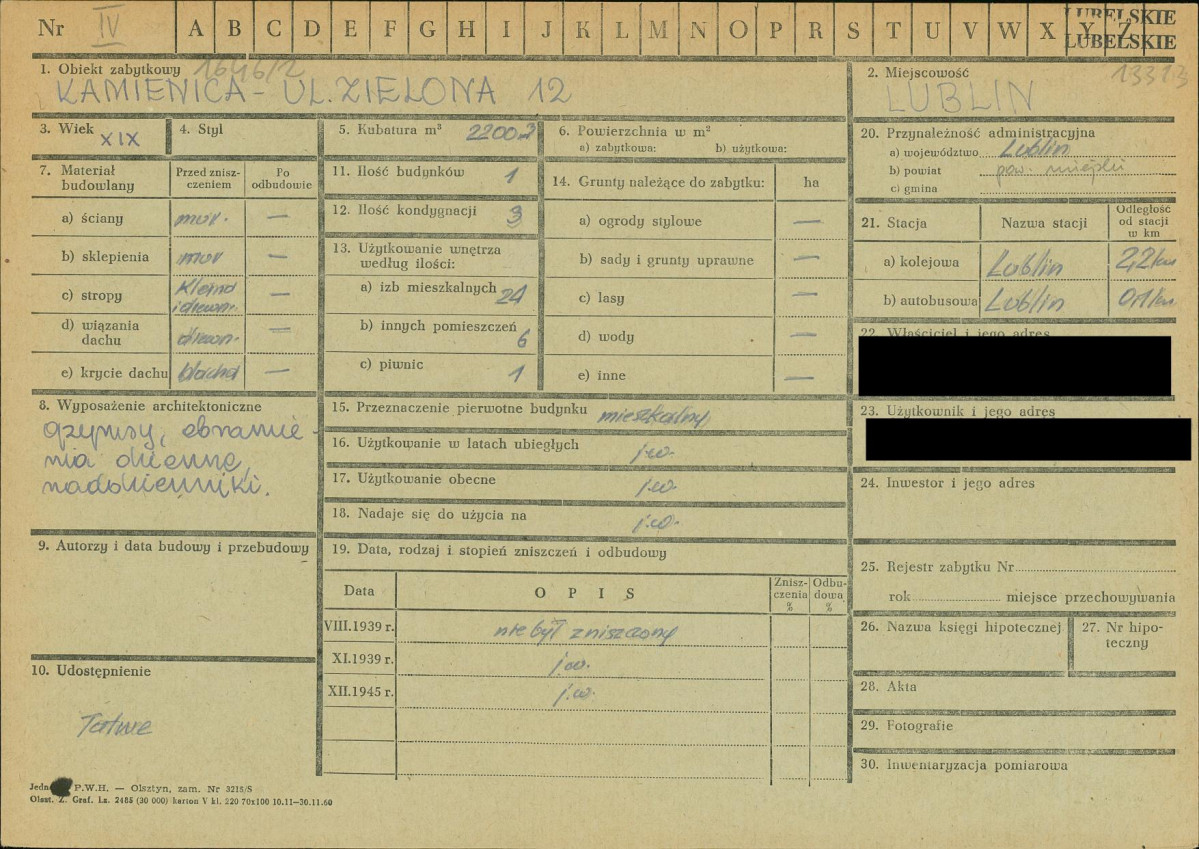 Nr IV A B C D E F G H I J K L M N O P R S T U V W X Y Z
LUBELSKIE
LUBELSKIE
1. Obiekt zabytkowy 1646/2
KAMIENICA - UL. ZIELONA 12
2. Miejscowość 13313
LUBLIN
3. Wiek XIX
4. Styl
5. Kubatura m³ 2200
6. Powierzchnia w m²
a) zabytkowa: b) użytkowa:
7. Materiał budowlany
Przed zniszczeniem
Po odbudowie
a) ściany mur. —
b) sklepienia mur —
c) stropy Kleina i drewn. —
d) wiązania dachu drewn. —
e) krycie dachu blacha —
8. Wyposażenie architektoniczne
gzymsy, obramie-
nia okienne,
nadokienniki.
9. Autorzy i data budowy i przebudowy
10. Udostępnienie
Łatwe
11. Ilość budynków 1
12. Ilość kondygnacji 3
13. Użytkowanie wnętrza
według ilości:
a) izb mieszkalnych 24
b) innych pomieszczeń 6
c) piwnic 1
14. Grunty należące do zabytku: ha
a) ogrody stylowe —
b) sady i grunty uprawne —
c) lasy —
d) wody —
e) inne —
15. Przeznaczenie pierwotne budynku mieszkalny
16. Użytkowanie w latach ubiegłych j.w.
17. Użytkowanie obecne j.w.
18. Nadaje się do użycia na j.w.
19. Data, rodzaj i stopień zniszczeń i odbudowy
Data OPIS Zniszczenia % Odbudowa %
VIII.1939 r. nie był zniszczony
XI.1939 r. j.w.
XII.1945 r. j.w.
20. Przynależność administracyjna
a) województwo Lublin
b) powiat pow. miejski
c) gmina
21. Stacja Nazwa stacji Odległość od stacji w km
a) kolejowa Lublin 2,2 km
b) autobusowa Lublin 0,1 km
22. Właściciel i jego adres
23. Użytkownik i jego adres
24. Inwestor i jego adres
25. Rejestr zabytku Nr
rok miejsce przechowywania
26. Nazwa księgi hipotecznej
27. Nr hipo-
teczny
28. Akta
29. Fotografie
30. Inwentaryzacja pomiarowa
P.W.H. — Olsztyn, zam. Nr 3218/S
Olszt. Z. Graf. Lz. 2485 (30 000) karton V kl. 220 70x100 10.11—30.11.60